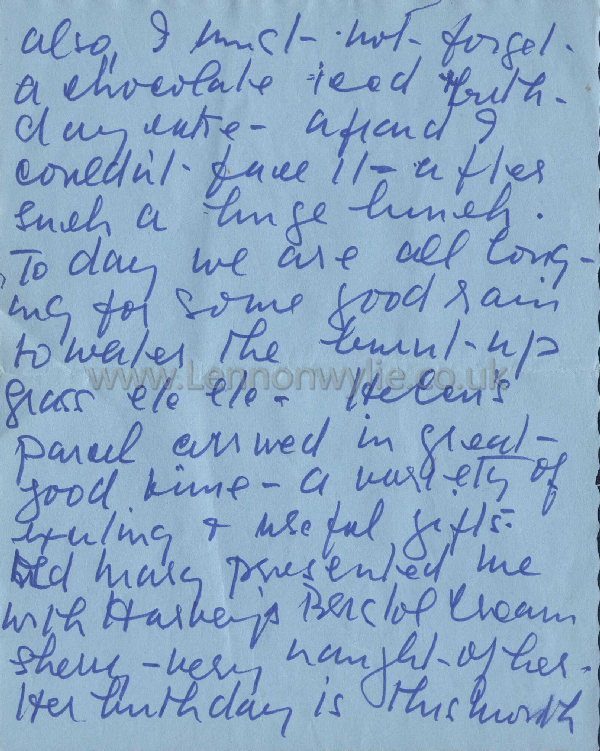 also, I must not forget
a chocolate iced birth-
day cake - afraid I
couldn't face it - after
such a huge lunch.
Today we are all long-
ing for some good rain
to water the burnt-up
www.Lennonwylie.co.uk
grass etc etc - Helen's
parcel arrived in great
good time - a variety of
exciting & useful gifts.
Mary presented me
with Harvey's Bristol Cream
sherry - very naught of her.
Her birthday is this month